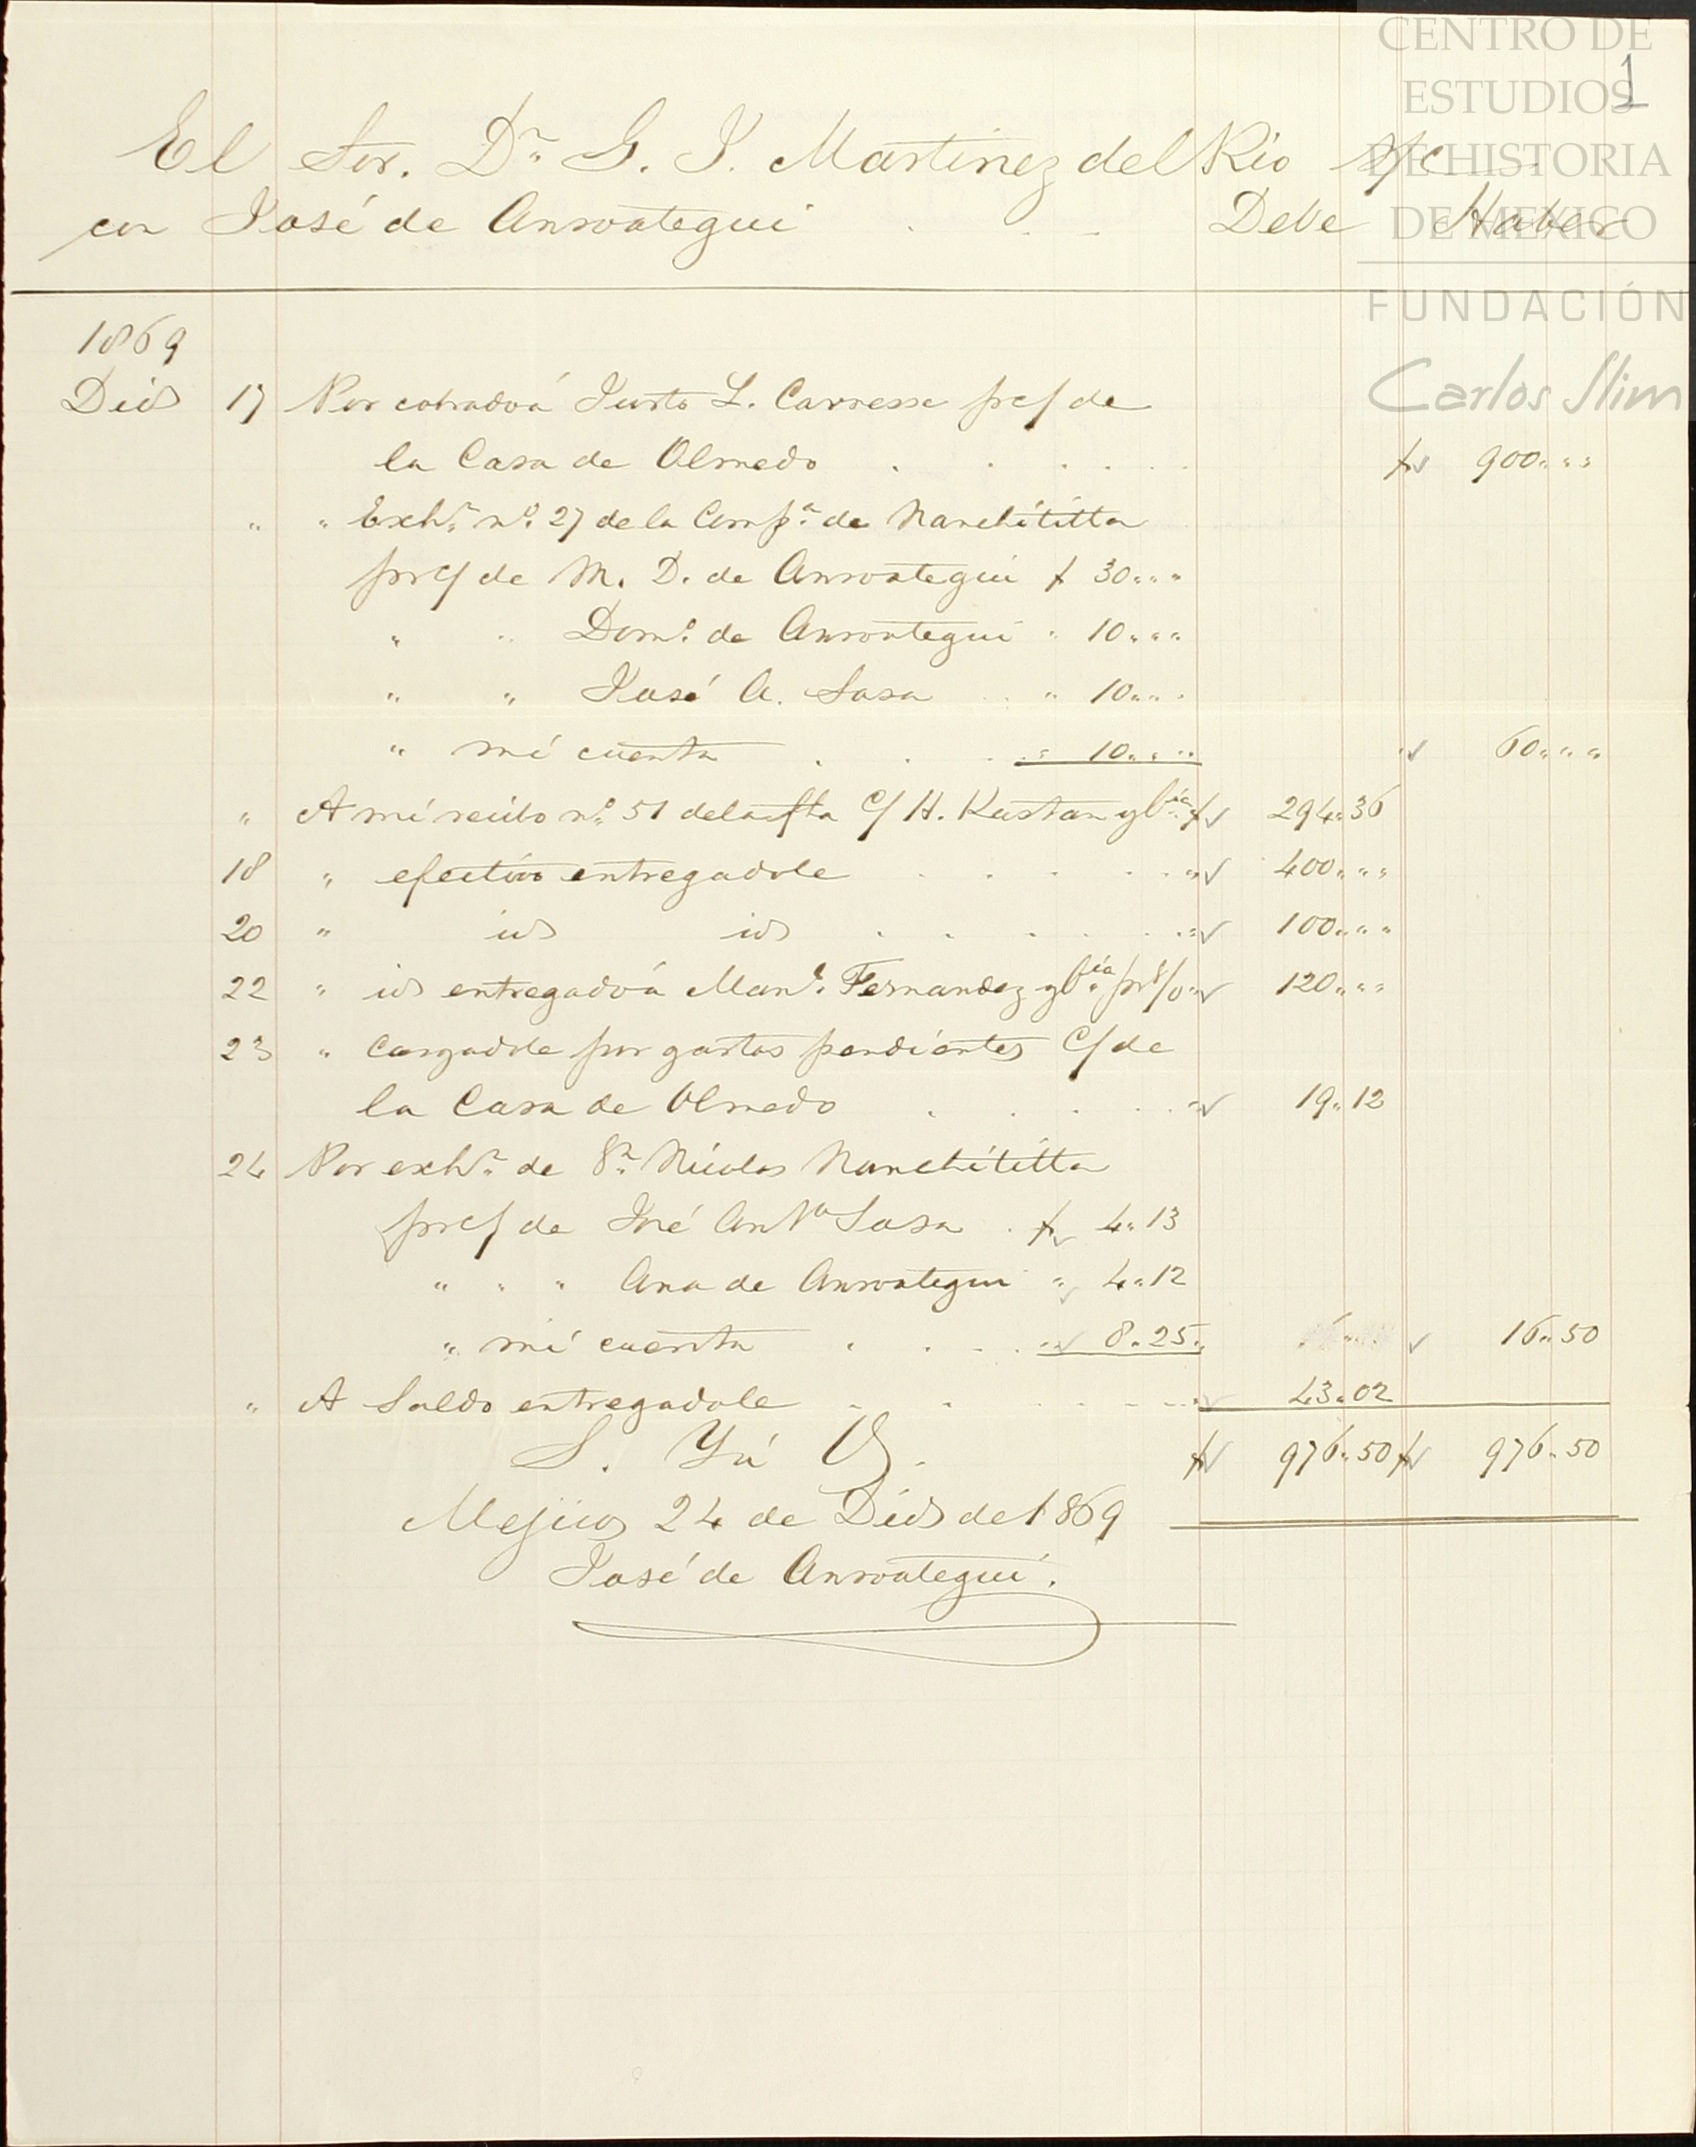 CENTRO DE
ESTUDIOS
DE HISTORIA
DE MEXICO
FUNDACIÓN
Carlos Slim
1
El Sor. Dr. G. J. Martinez del Rio S/C
con José de Ansoategui Debe Haber
1869
Dic 17 Por cobrado á Justo L. Carresse pr c/ de
la Casa de Olmedo $ 900 " "
" " Exhn. no. 27 de la Compa. de Nanchititla
pr c/ de M. D. de Ansoategui $ 30 " "
" " Domo. de Ansoategui " 10 " "
" " José A. Sosa " 10 " "
" mi cuenta " 10 " " " 60 " "
" A mi recibo no. 51 de la fta C/ H. Kustan y Cia. $ 294 " 36
18 " efectivo entregadole " 400 " "
20 " id id " 100 " "
22 " id entregado á Manl. Fernandez y Cia. pr s/o " 120 " "
23 " Cargadole por gastos pendientes C/ de
la Casa de Olmedo " 19 " 12
24 Por exhn. de Sn. Nicolas Nanchititla
pr c/ de José Anto Sosa $ 4 " 13
" " " Ana de Ansoategui " 4 " 12
" mi cuenta " 8 " 25 16 " 50
" A Saldo entregadole " 43 " 02
S. Yú O. $ 976 " 50 $ 976 " 50
Mejico 24 de Dic de 1869
José de Ansoategui.